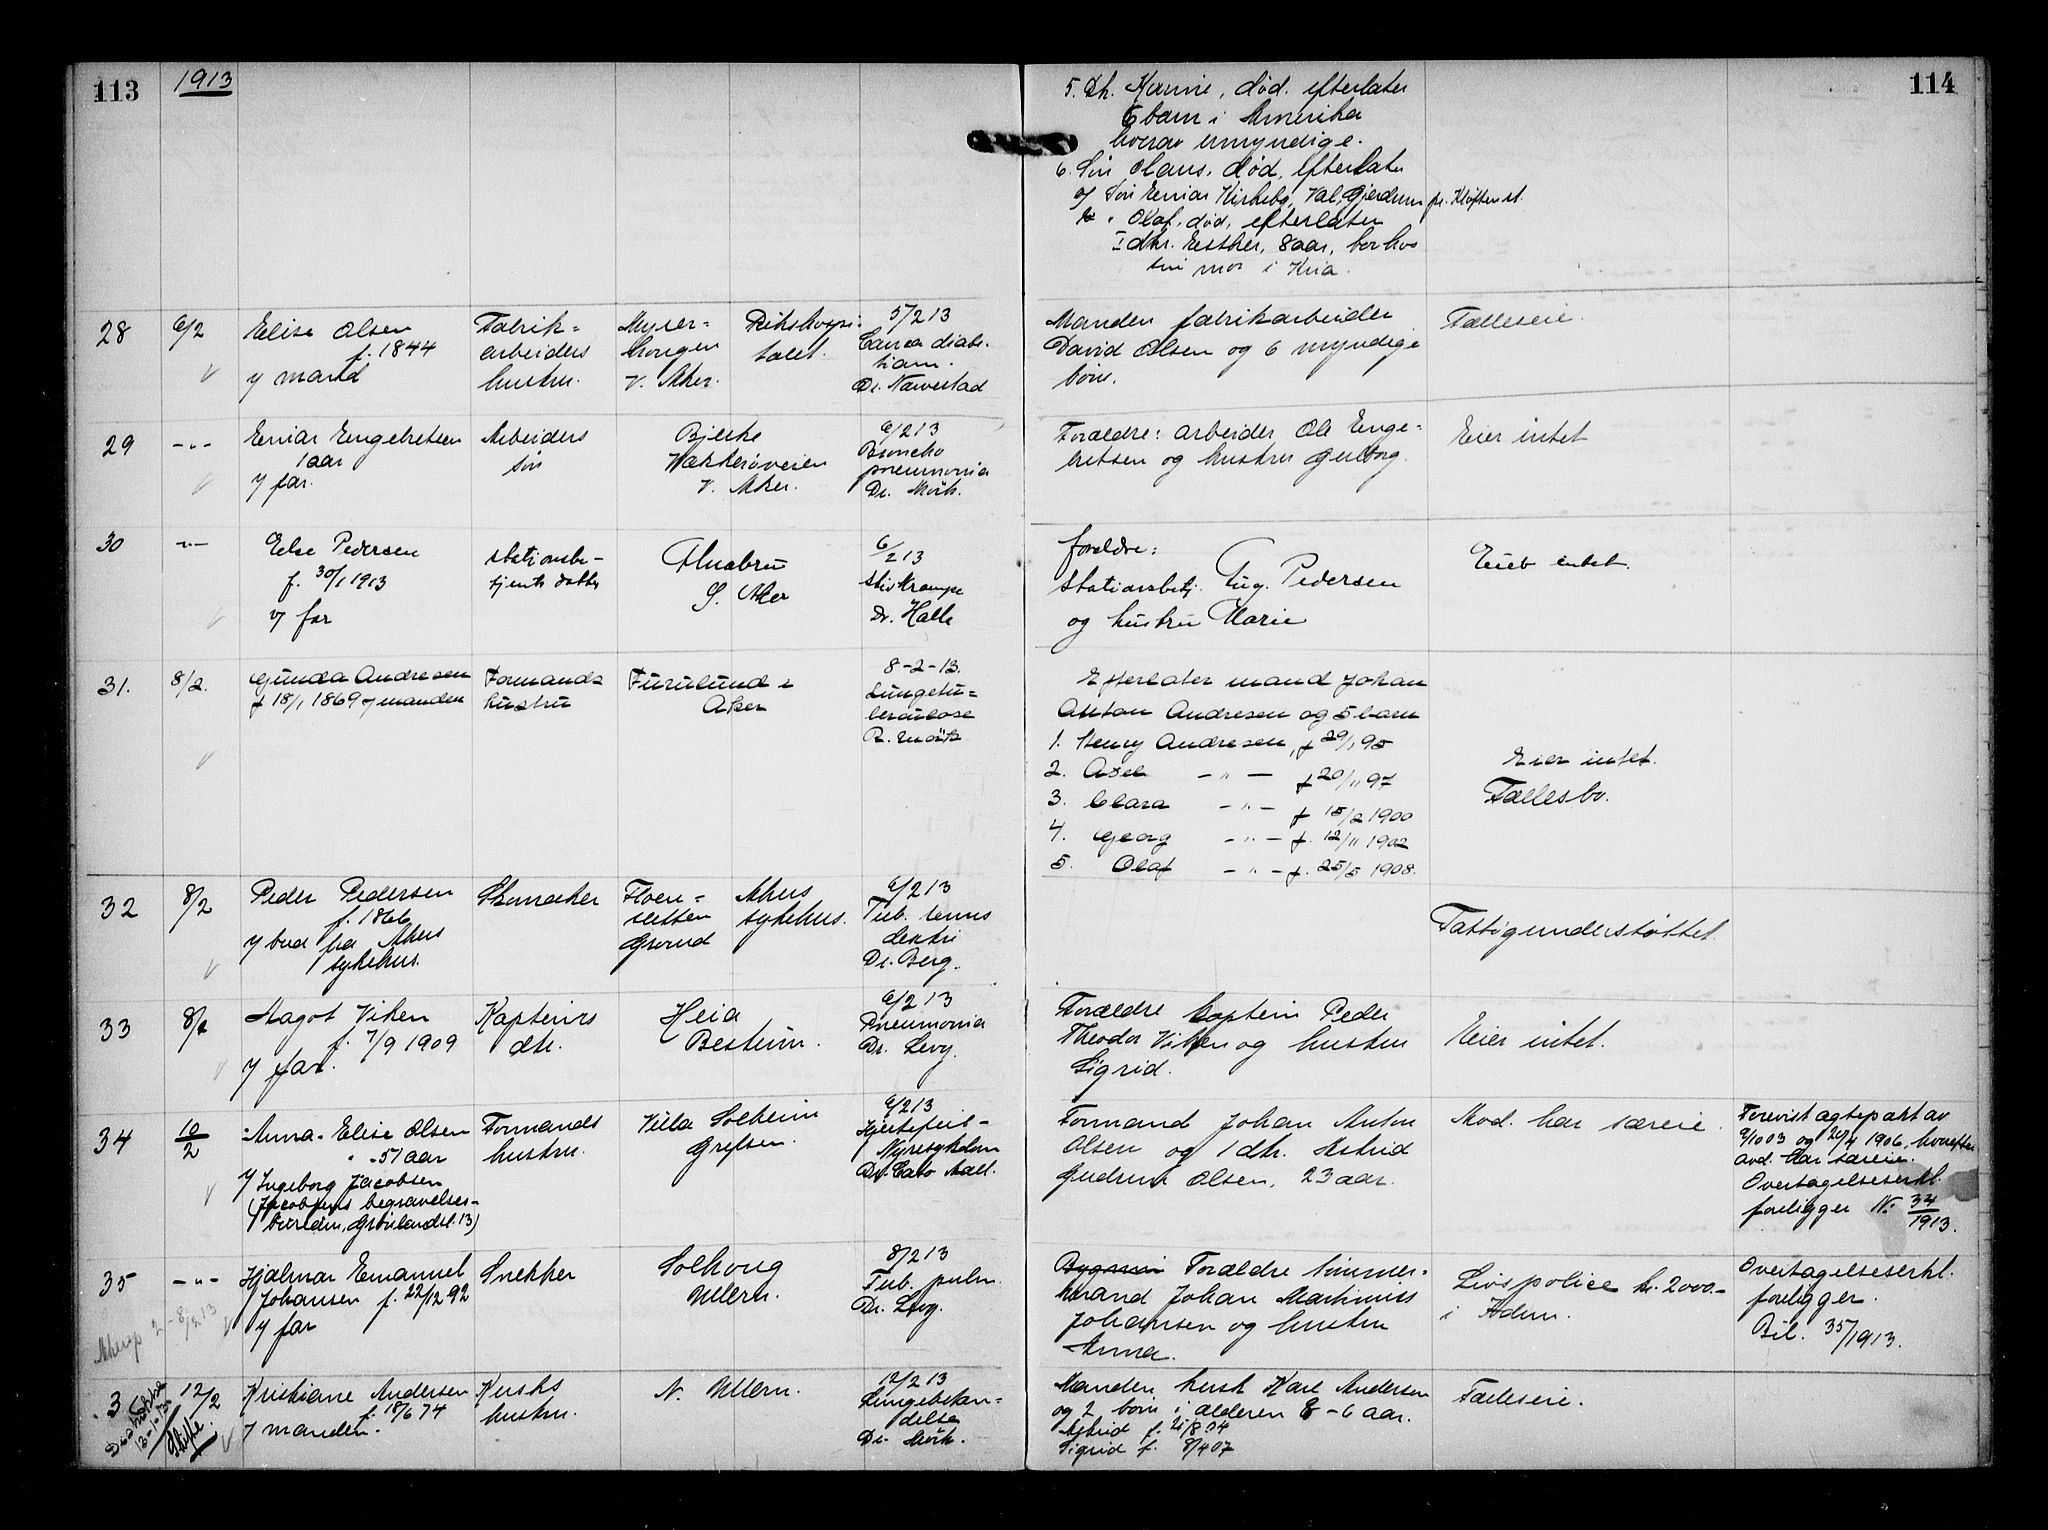 113
1913
114
5. Dh. Karine, død. efterlater
6 barn i Amerika
hvorav umyndige.
6. Søn Claus, død, efterlater
a) Søn Einar Kirkeby, Val, Gjerdrum pr. Kløften st.
b) " Olaf, død, efterlater
1 dtr. Esther, 8 aar, bor hos
sin mor i Kria.
28
6/2
Elise Olsen
f. 1844
v/ mand
Fabrik-
arbeiders
hustru.
Myrer-
v. Aker.
Rikshospi-
talet.
5/2 13
diabe-
ticum.
Dr. Næverstad
Manden fabrikarbeider
David Olsen og 6 myndige
børn.
Fælleseie.
29
-"-
Einar Engebretsen
1 aar
v/ far.
Arbeiders
søn
Bjerke
Vækkerøveien
V. Aker.
6/2 13
Broncho
pneumonia
Dr. Mörk.
Forældre: arbeider Ole Enge-
bretsen og hustru Gulborg.
Eier intet
30
-"-
Else Pedersen
f. 30/1 1913
v/ far
stationsbe-
tjents datter
Alnabru
Ø. Aker
6/2 13
stivkrampe
Dr. Halle
foreldre:
stationsbetj. Aug. Pedersen
og hustru Marie
Eier intet.
31.
8/2.
Gunda Andresen
f 18/1 1869 v/ manden
Formands
hustru
Furulund i
Aker
8-2-13.
Lungetu-
berculose
D. Mörk
Efterlater mand Johan
Anton Andresen og 5 barn
1. Henry Andresen, f 29/1 95
2. Axel -"- f 20/11 97
3. Clara -"- f 15/2 1900
4. Georg -"- f. 12/11 1902
5. Olaf -"- f. 25/5 1908.
Eier intet.
Fællesbo.
32
8/2
Peder Pedersen
f. 1866
v/ bud fra Akers
sykehus.
Skomaker
Floen-
sletten
Grorud
Akers
sykehus.
6/2 13
Tub.
Dr. Berg.
Fattigunderstøttet.
33
8/2
Magot Viken
f. 7/9 1909
v/ far.
Kapteins
dtr.
Heia
Bestum.
6/2 13
Pneumonia
Dr. Levy.
Forældre Captein Peder
Theodor Viken og hustru
Sigrid.
Eier intet.
34
10/2
Anna Elise Olsen
51 aar
v/ Ingeborg Jacobsen
(Jacobsens begravelses-
bureau, Grønlandsl. 13)
Formands
hustru.
Villa Solheim
Grefsen.
6/2 13
Hjertefeil-
Nyresykdom
Dr. Cato Aall.
Formand Johan Anton
Olsen og 1 dtr. Astrid
Gudrun Olsen, 23 aar.
Avd. har særeie.
Forevist ægtepakt av
9/10 03 og 20/4 1906, hvorefter
avd. har særeie.
Overtagelseserkl.
foreligger No 34/1913.
35
-"-
Hjalmar Emanuel
Johansen f. 22/12 92
v/ far
Snekker
Solhoug
Ullern.
8/2 13
Tub. pulm.
Dr. Levy.
Forældre tømmer-
mand Johan Martinius
Johansen og hustru
Anna.
Livspolice kr. 2000.-
i Idun.
Overtagelseserkl.
foreligger.
Bil. 35/1913.
3
12/2
Kristiane Andersen
f. 18/6 74
v/ manden.
Kusks
hustru.
N. Ullern.
12/2 13
Lungebetæn-
delse
Dr. Mörk.
Manden, kusk Karl Andersen
og 2 børn i alderen 8-6 aar.
Astrid f. 21/8 04
Sigrid f. 8/4 07
Fælleseie.